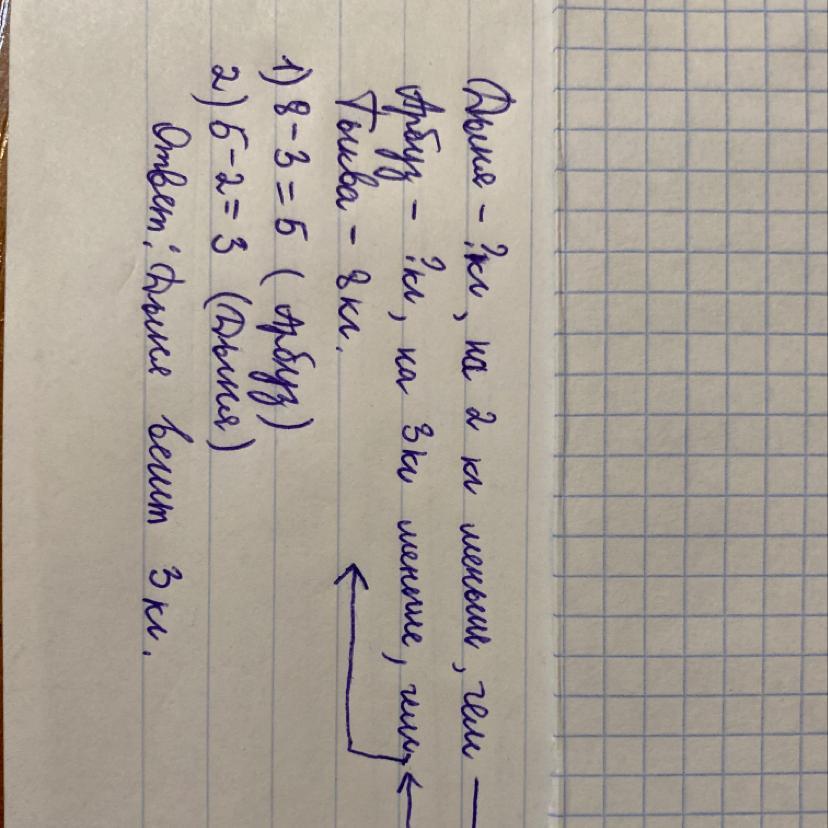 Дыня - ?кг, на 2 кг меньше, чем
Арбуз - ?кг, на 3кг меньше, чем
Тыква - 8кг.
1) 8-3=5 (Арбуз)
2) 5-2=3 (Дыня)
Ответ: Дыня весит 3кг.